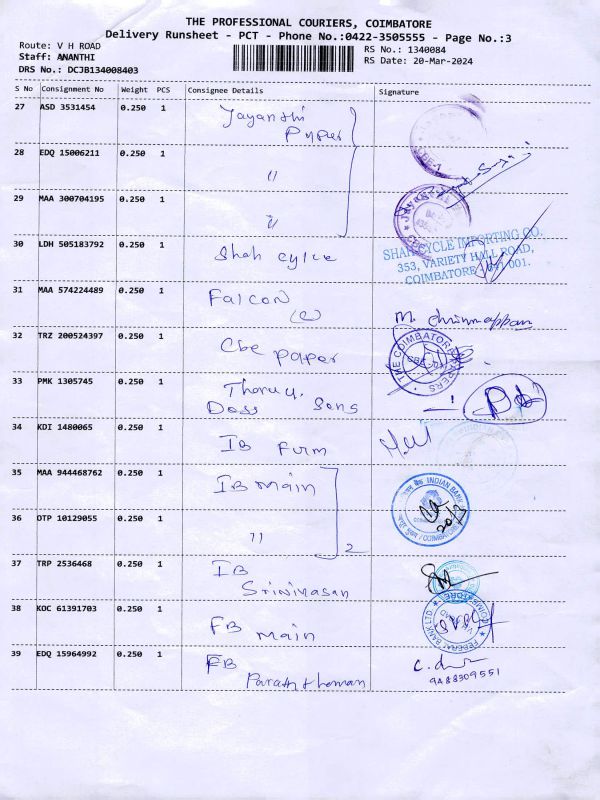 THE PROFESSIONAL COURIERS, COIMBATORE
Delivery Runsheet - PCT - Phone No.:0422-3505555 - Page No.:3
Route: V H ROAD
RS No.: 1340084
Staff: ANANTHI
RS Date: 20-Mar-2024
DRS No.: DCJB134008403
S No Consignment No Weight PCS Consignee Details Signature
27 ASD 3531454 0.250 1 Jayanthi
28 EDQ 15006211 0.250 1 "
29 MAA 300704195 0.250 1 "
30 LDH 505183792 0.250 1 Shah cycle
SHAH CYCLE IMPORTING CO.
353, VARIETY HALL ROAD,
COIMBATORE 641 001.
31 MAA 574224489 0.250 1 Falcon
M. Chinnappan
32 TRZ 200524397 0.250 1 Cbe paper
THE COIMBATORE PAPERS
33 PMK 1305745 0.250 1
Doss Sons
34 KDI 1480065 0.250 1 IB Furm
35 MAA 944468762 0.250 1 IB main
INDIAN BANK
COIMBATORE
20/3
36 OTP 10129055 0.250 1 "
2
37 TRP 2536468 0.250 1 IB
Srinivasan
38 KOC 61391703 0.250 1 FB
main
FEDERAL BANK LTD.
39 EDQ 15964992 0.250 1 FB
9488309551